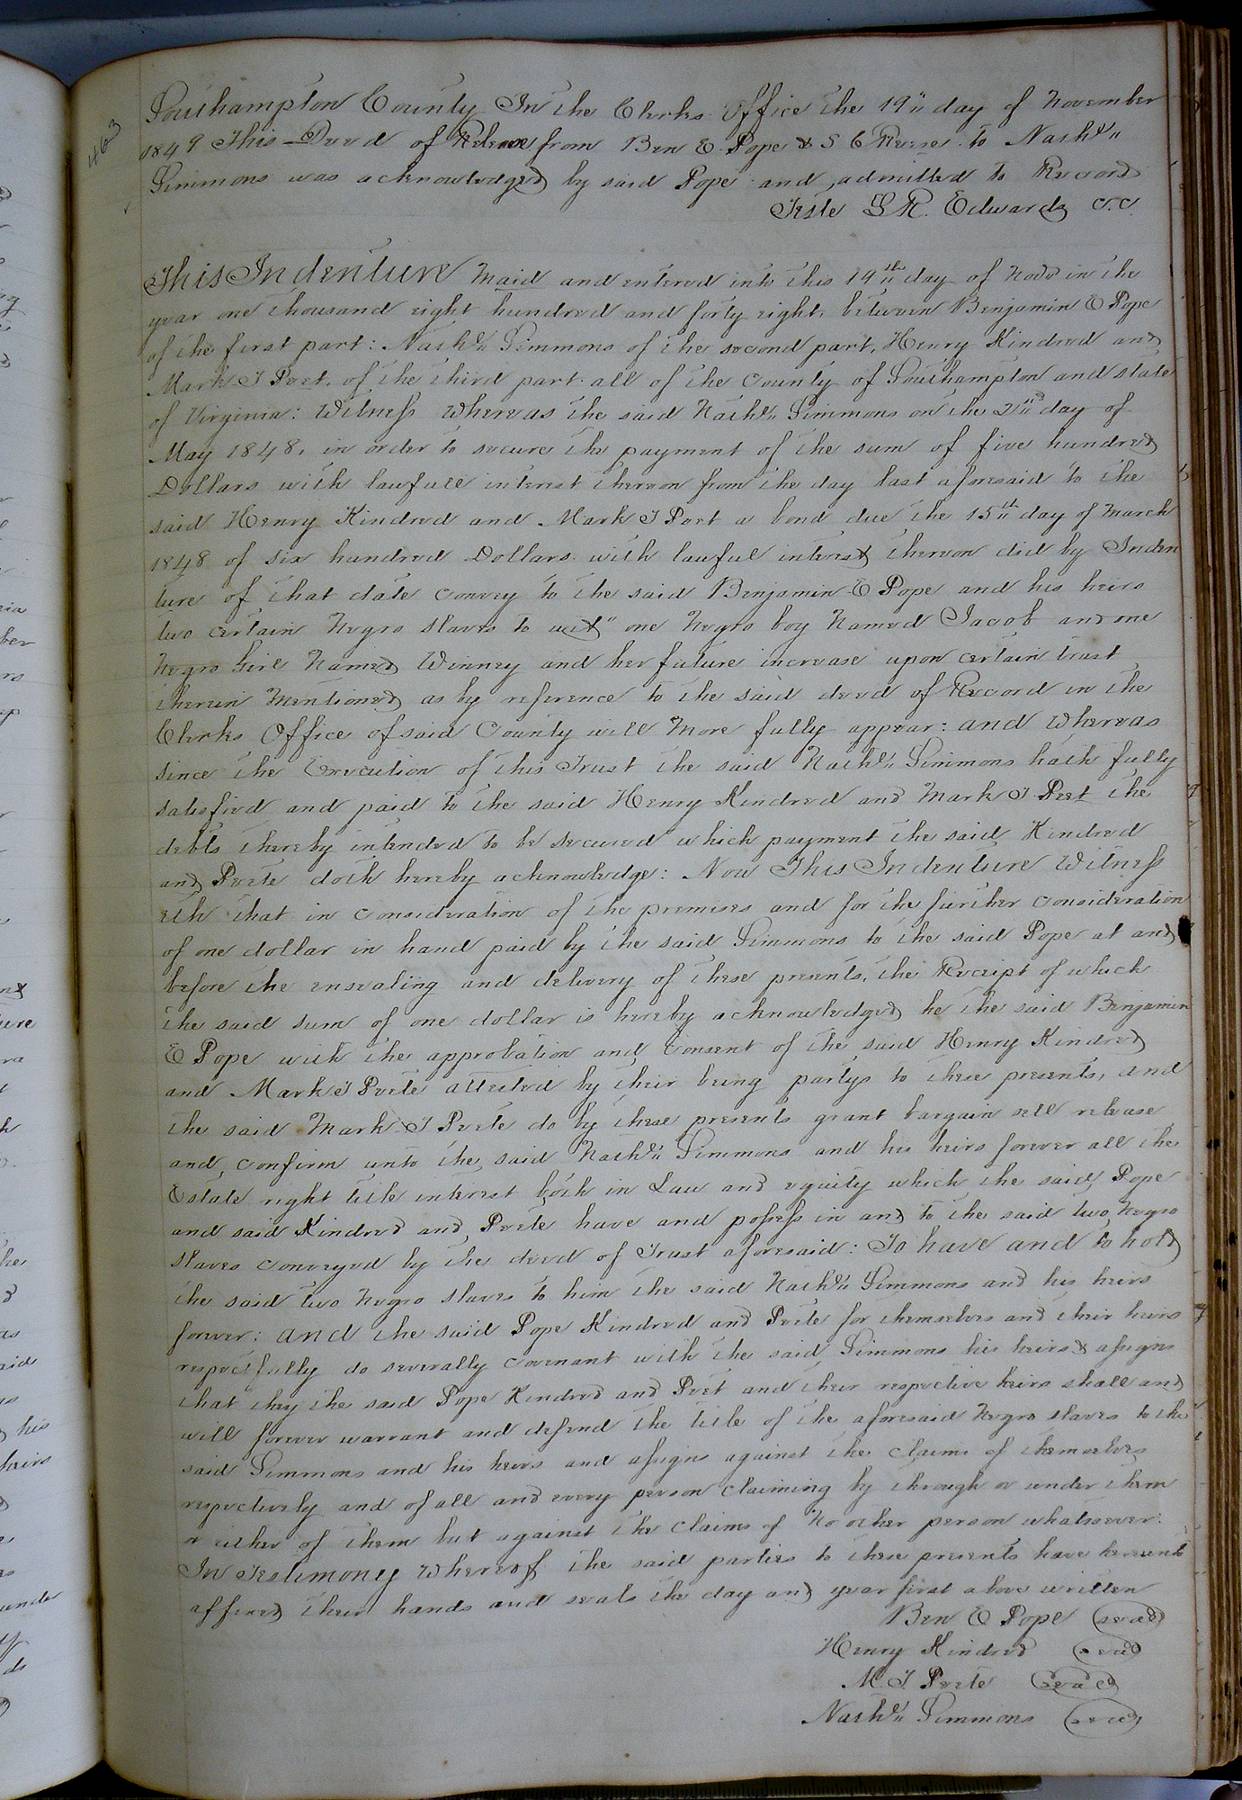 463
Southampton County In the Clerks Office the 19" day of November
1849 This Deed of Release from Ben E. Pope & S C Reese to Nathl"
Simmons was acknowledged by said Pope and admitted to Record
Teste L R. Edwards C.C.
This Indenture Maid and entered into this 14th day of Novr in the
year one thousand eight hundred and forty eight, between Benjamin E Pope
of the first part: Nathl" Simmons of the second part, Henry Kindred and
Mark J Peet, of the third part. all of the County of Southampton and state
of Virginia: Witness Whereas the said Nathl" Simmons on the 2nd day of
May 1848. in order to secure the payment of the sum of five hundred
Dollars with lawfull interest thereon from the day last aforesaid to the
said Henry Kindred and Mark J Peet a bond due the 15th day of March
1848 of six hundred Dollars with lawful interest thereon did by Inden
ture of that date convey to the said Benjamin E Pope and his heirs
two certain Negro slaves to wit" one Negro boy Named Jacob and one
Negro Girl Named Winney and her future increase upon certain trust
therein Mentioned as by reference to the said deed of Record in the
Clerks Office of said County will More fully appear: and Whereas
since the Execution of this Trust the said Nathl" Simmons hath fully
satisfied and paid to the said Henry Kindred and Mark J Peet the
debts thereby intended to be secured which payment the said Kindred
and Peete doth hereby acknowledge: Now This Indenture Witness
eth that in consideration of the premises and for the further consideration
of one dollar in hand paid by the said Simmons to the said Pope at and
before the ensealing and delivery of these presents, the Receipt of which
the said sum of one dollar is hereby acknowledged he the said Benjamin
E Pope with the approbation and Consent of the said Henry Kindred
and Mark J Peete attested by their being partys to these presents, and
the said Mark J Peete do by these presents grant bargain sell release
and confirm unto the said Nathl" Simmons and his heirs forever all the
Estate right title interest both in Law and equity which the said Pope
and said Kindred and Peete have and possess in and to the said two Negro
slaves conveyed by the deed of Trust aforesaid: To have and to hold
the said two Negro slaves to him the said Nathl" Simmons and his heirs
forever: and the said Pope Kindred and Peete for themselves and their heirs
respectfully do severally covenant with the said Simmons his heirs & assigns
that they the said Pope Kindred and Peet and their respective heirs shall and
will forever warrant and defend the title of the aforesaid Negro slaves to the
said Simmons and his heirs and assigns against the claims of themselves
respectively and of all and every person claiming by through or under them
or either of them but against the claims of No other person whatsoever.
In Testimony Whereof the said parties to these presents have hereunto
affixed their hands and seals the day and year first above written
Ben E Pope (seal)
Henry Kindred (seal)
M. J Peete (Seal)
Nathl" Simmons (seal)